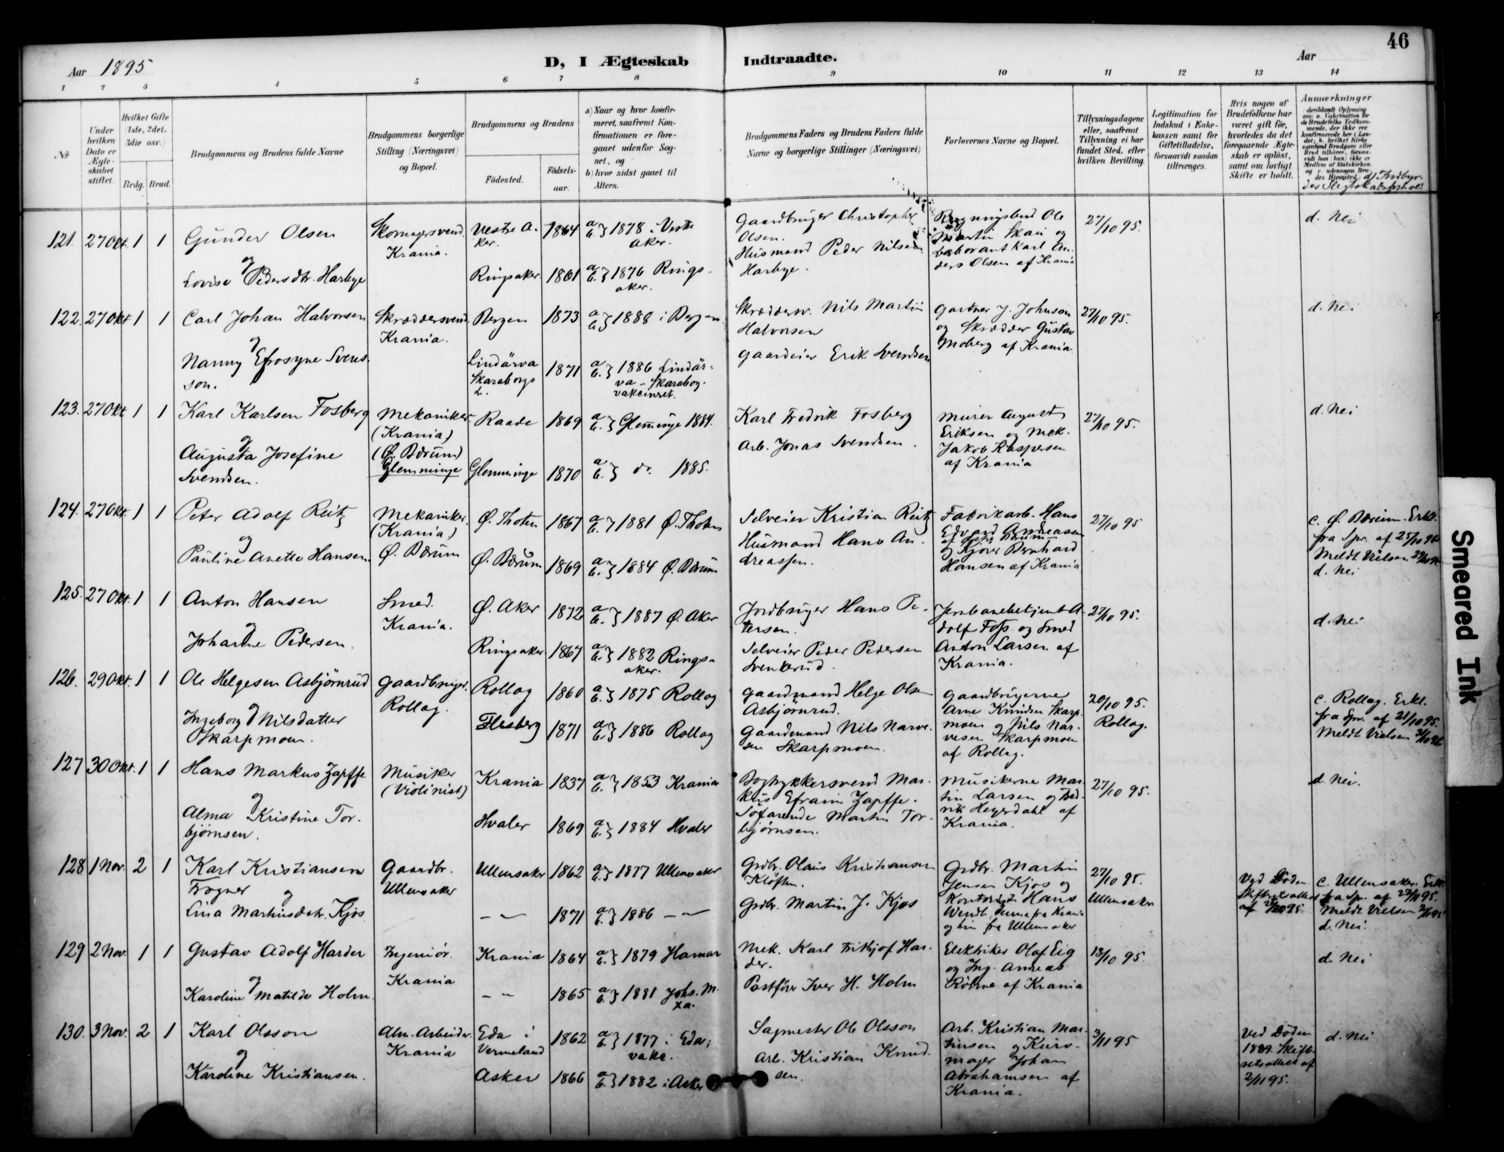 46
Aar 1895
D, I Ægteskab Indtraadte.
Aar
1 2 3 4 5 6 7 8 9 10 11 12 13 14
No
Under hvilken Dato er Ægteskabet stiftet.
Hvilket Gifte (1ste, 2det, 3die osv.)
Brdg. Brud.
Brudgommens og Brudens fulde Navne
Brudgommens borgerlige Stilling (Næringsvei) og Bopæl.
Brudgommens og Brudens
Fødested.
Fødselsaar.
a) Naar og hvor konfirmeret, saafremt Konfirmationen er foregaaet udenfor Sognet, og
b) hvor sidst gaaet til Alters.
Brudgommens Faders og Brudens Faders fulde Navne og borgerlige Stillinger (Næringsvei)
Forlovernes Navne og Bopæl.
Tillysningsdagene eller, saafremt Tillysning ei har fundet Sted, efter hvilken Bevilling.
Legitimation for Indskud i Enkekassen samt for Giftetilladelse, forsaavidt saadan tiltrænges.
Hvis nogen af Brudefolkene har været gift før, hvorledes da det foregaaende Ægteskab er opløst, samt om lovligt Skifte er holdt.
Anmerkninger
121. 27 Okt. 1 1 Gunder Olsen Skomagersvend. Vestre A- 1864 a/b } 1878 i Vestre Gaardbruger Christopher Ole 27/10 95 d. Nei
og Krania. ker. Aker. Olsen. Martin Skau og
Husmand Peder Nilsen Laborant Karl An-
Lovise Pedersdtr Harbye Ringsaker 1861 a/b } 1876 Rings- Harbye. ders Olsen af Krania
aker.
122. 27 Okt 1 1 Carl Johan Halvorsen Skræddersvend Bergen 1873 a/b } 1888 i Bergen Skræddersv. Nils Martin Gartner J. Johnson 27/10 95. d. Nei
og Krania. Halvorsen og Skrædder Gustav
Nanny Efrosyne Svens- Lindärva 1871 a/b } 1886 Lindär- Gaardeier Erik Svendsen Moberg af Krania
son. Skaraborgs va - Skaraborg.
L. vakcineret.
123. 27 Okt 1 1 Karl Karlsen Fosberg Mekaniker Raade 1869 a/b } Glemminge 1884. Karl Fredrik Fosberg Murer August 27/10 95. d. Nei
og (Krania) Eriksen og Mek.
Augusta Josefine (Ø. Bærum) Arb. Jonas Svendsen. Jakob Kaspersen
Svendsen. Glemminge Glemminge 1870 a/b } do. 1885. af Krania
124. 27 Okt. 1 1 Peter Adolf Reitz Mekaniker. Ø. Thoten 1867 a/b } 1881 Ø. Thoten Selveier Kristian Reitz Fabrikarb. Hans 27/10 95 c. Ø. Bærum. Erkl.
og (Krania) Edvard Andreassen fra Spr. af
Pauline Anette Hansen Ø. Bærum Ø. Bærum 1869 a/b } 1884 Ø. Bærum Husmand Hans An- og Bernhard Meldt Vielsen
dreassen. Hansen af Krania d. Nei
125. 27 Okt. 1 1 Anton Hansen Smed. Ø. Aker 1872 a/b } 1887 Ø. Aker Jordbruger Hans Pe- Jernbanebetjent A- 27/10 95. d. Nei
og Krania. tersen. dolf Foss og Smed
Johanne Pedersen. Ringsaker 1867 a/b } 1882 Rings- Selveier Peder Pedersen Anton Larsen af
aker. Svenkerud. Krania.
126. 29 Okt. 1 1 Ole Helgesen Asbjørnrud Gaardbruger. Rollag 1860 a/b } 1875 Rollag Gaardmand Helge Olsen Gaardbrugerne 20/10 95. c. Rollag. Erkl.
og Rollag. Asbjørnrud. Arne Knudsen Skarp- Rollag. fra Spr. af 21/10 95.
Ingeborg Nilsdatter Flesberg 1871 a/b } 1886 Rollag Gaardmand Nils Narve- moen og Nils Nar- Meldt Vielsen
Skarpmoen. sen Skarpmoen. vesen Skarpmoen
af Rollag.
127 30 Okt. 1 1 Hans Markus Zapffe Musiker Krania 1837 a/b } 1853 Krania Bogtrykkersvend Mar- Musikerne Mar- 27/10 95. d. Nei.
og (Violinist) kus Efraim Zapffe. tin Larsen og
Alma Kristine Tor- Hvaler 1869 a/b } 1884 Hvaler Søfarende Martin Tor- Heyerdahl af
bjørnsen. bjørnsen. Krania.
128 1 Nov. 2 1 Karl Kristiansen Gaardbr. Ullensaker 1862 a/b } 1877 Ullensaker Grdbr. Olaus Kristiansen Grdbr. Martin 27/10 95. Ved Døden c. Ullensaker. Erkl.
Frogner og Ullensaker Kløften. Jensen Kjos og Ullensaker Skifteretsattest fra Spr. af
Lina Martinsdatr. Kjos - " - 1871 a/b } 1886 - " - Grdbr. Martin J. Kjos Kontorist Hans af 95. Meldt Vielsen
fra Ullensaker d. Nei.
129 2 Nov. 1 1 Gustav Adolf Harder Ingeniør. Krania 1864 a/b } 1879 Hamar Mek. Karl Frithjof Har- Elektriker Olaf Eig 13/10 95 d. Nei
og Krania der. og Ing. Andreas
Karoline Matilde Holm. - " - 1865 a/b } 1881 Johs. M. Postfører Iver H. Holm af Krania
130. 3 Nov. 2 1 Karl Olsson Alm. Arbeider Eda i 1862 a/b } 1877 i Eda; Sagmester Ole Olsson Arb. Kristian Mar- 3/11 95 Ved Døden d. Nei
og Krania Vermeland vakc. Arb. Kristian Knud- tinsen og Kurv- 1889. Skifte-
Karoline Kristiansen. Asker 1866 a/b } 1882 i Asker sen. mager Johan retsattest af
Abrahamsen af 2/11 95.
Krania.
Smeared Ink